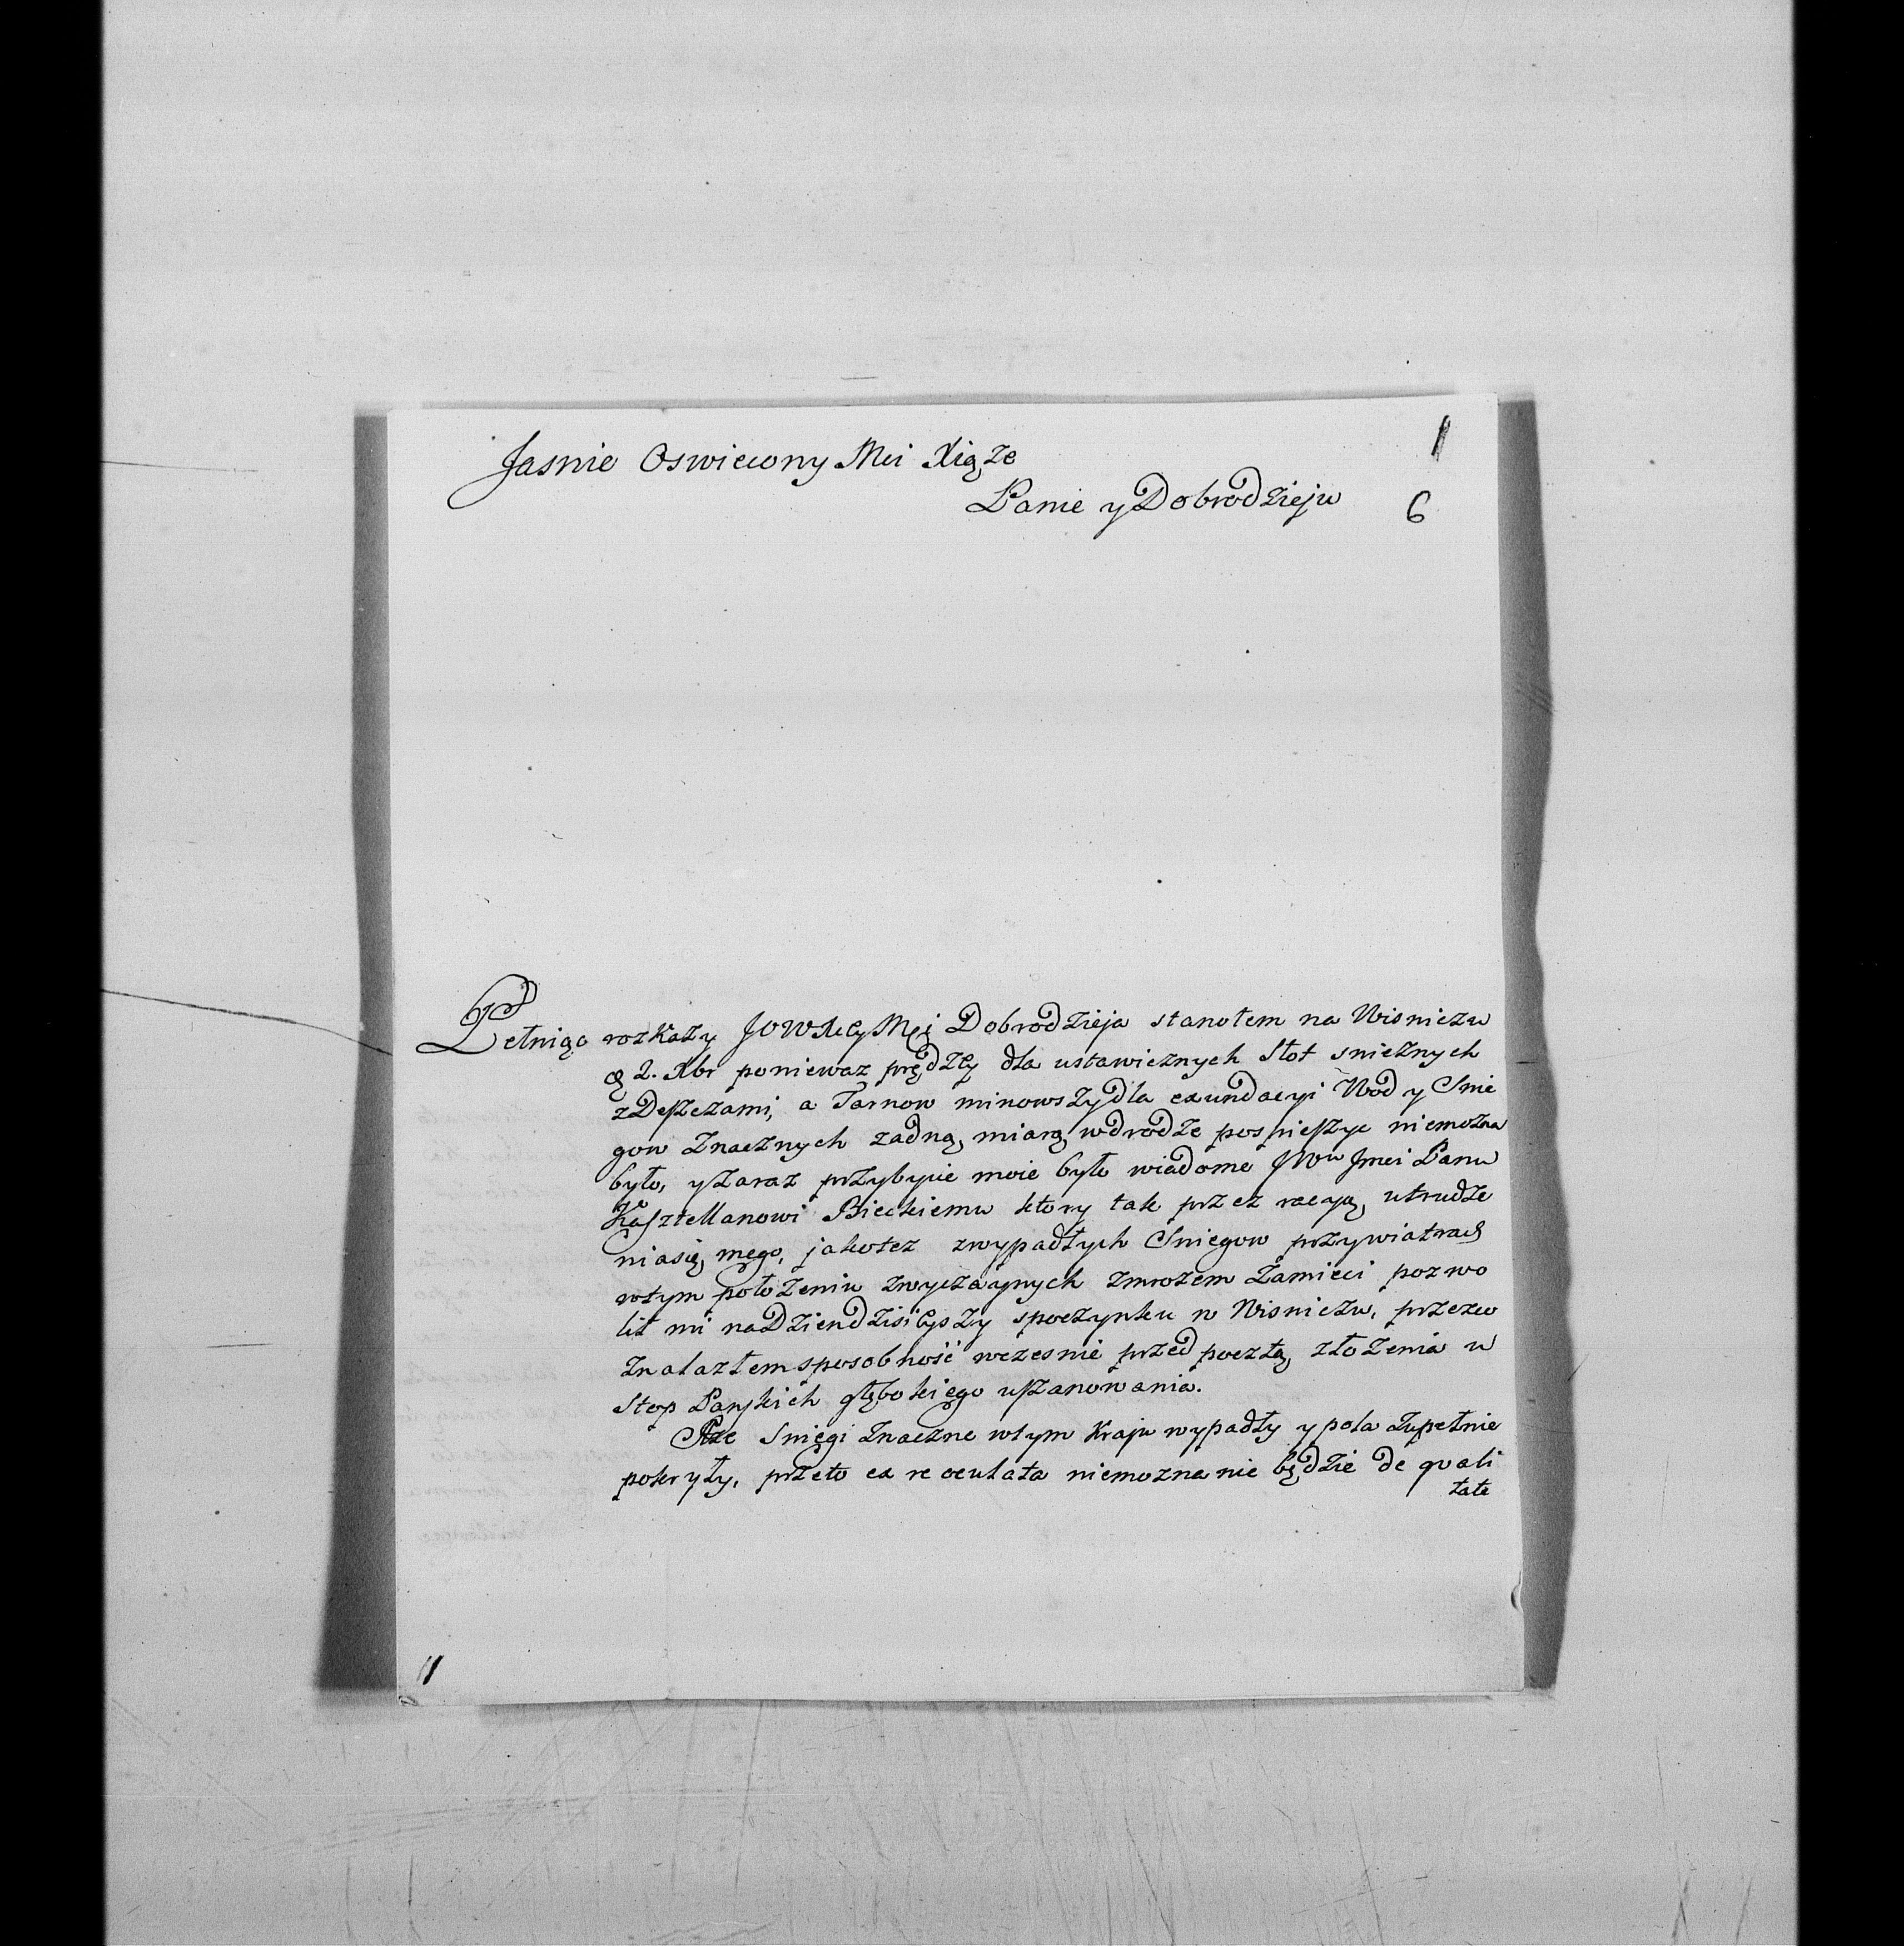 Jasnie Oswiecony Mci Xiąze
1
Panie y Dobrodzieju
6
Pełniąc rozkazy JOWXCy Męj Dobrodzieja stanołem na Wisniczu
2. Xbr poniewaz prędzey dla ustawicznych Słot snieznych
z Deszczami, a Tarnow minowszy dla exundacyi Wod y Snie
gow znacznych zadną miarą w drodze pospieszyc niemozna
było, y zaraz przybycie moie było wiadome JWu Jmci Panu
Kasztellanowi Bieckiemu ktory tak przez racyą utrudze
nia się mego, jakotez z wypadłych Sniegow przy wiatrach
w tym połozeniu zwyczaynych z mrozem Zamieci pozwo
lił mi na Dzien dzisieyszy spoczynku w Wisniczu, przezco
znalazłem sposobność wczesnie przed pocztą złozenia u
Stop Pańskich głębokiego uszanowania.
Ize Sniegi znaczne w tym Kraju wypadły y pola zupełnie
pokryły, przeto ex re oculata niemozna nie będzie de quali
tate